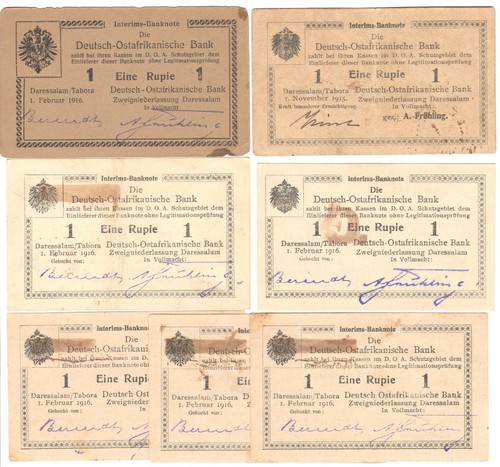 Interims-Banknote
Die
Deutsch-Ostafrikanische Bank
zahlt bei ihren Kassen im D. O. A. Schutzgebiet dem
Einlieferer dieser Banknote ohne Legitimationsprüfung
1 Eine Rupie 1
Daressalam/Tabora Deutsch-Ostafrikanische Bank
1. Februar 1916. Zweigniederlassung Daressalam
In Vollmacht
Berendt A Frühling
Interims-Banknote
Die
Deutsch-Ostafrikanische Bank
zahlt bei ihren Kassen im D. O. A. Schutzgebiet dem
Einlieferer dieser Banknote ohne Legitimationsprüfung
1 Eine Rupie 1
Daressalam/Tabora Deutsch-Ostafrikanische Bank
1. November 1915. Zweigniederlassung Daressalam
Kraft besonderer Ermächtigung In Vollmacht:
gez. A. Frühling
Interims-Banknote
Die
Deutsch-Ostafrikanische Bank
zahlt bei ihren Kassen im D. O. A. Schutzgebiet dem
Einlieferer dieser Banknote ohne Legitimationsprüfung
1 Eine Rupie 1
Daressalam/Tabora Deutsch-Ostafrikanische Bank
1. Februar 1916. Zweigniederlassung Daressalam
Gebucht von: In Vollmacht:
Berendt A Frühling
Interims-Banknote
Die
Deutsch-Ostafrikanische Bank
zahlt bei ihren Kassen im D. O. A. Schutzgebiet dem
Einlieferer dieser Banknote ohne Legitimationsprüfung
1 Eine Rupie 1
Daressalam/Tabora Deutsch-Ostafrikanische Bank
1. Februar 1916. Zweigniederlassung Daressalam
Gebucht von: In Vollmacht:
Berendt A Frühling
Interims-Banknote
Die
Deutsch-Ostafrikanische
zahlt bei ihren Kassen im D. O.
Einlieferer dieser Banknote ohne
1 Eine Rupie
Daressalam/Tabora Deutsch-Ost
1. Februar 1916. Zweignie
Gebucht von:
Berendt
Interims
Deutsch-Osta
1
Daressalam/Tabora
1. Februar 1916.
Gebucht von:
Berendt
Interims-Banknote
Die
Deutsch-Ostafrikanische Bank
zahlt bei ihren Kassen im D. O. A. Schutzgebiet dem
Einlieferer dieser Banknote ohne Legitimationsprüfung
1 Eine Rupie 1
Daressalam/Tabora Deutsch-Ostafrikanische Bank
1. Februar 1916. Zweigniederlassung Daressalam
Gebucht von: In Vollmacht:
Berendt A Frühling